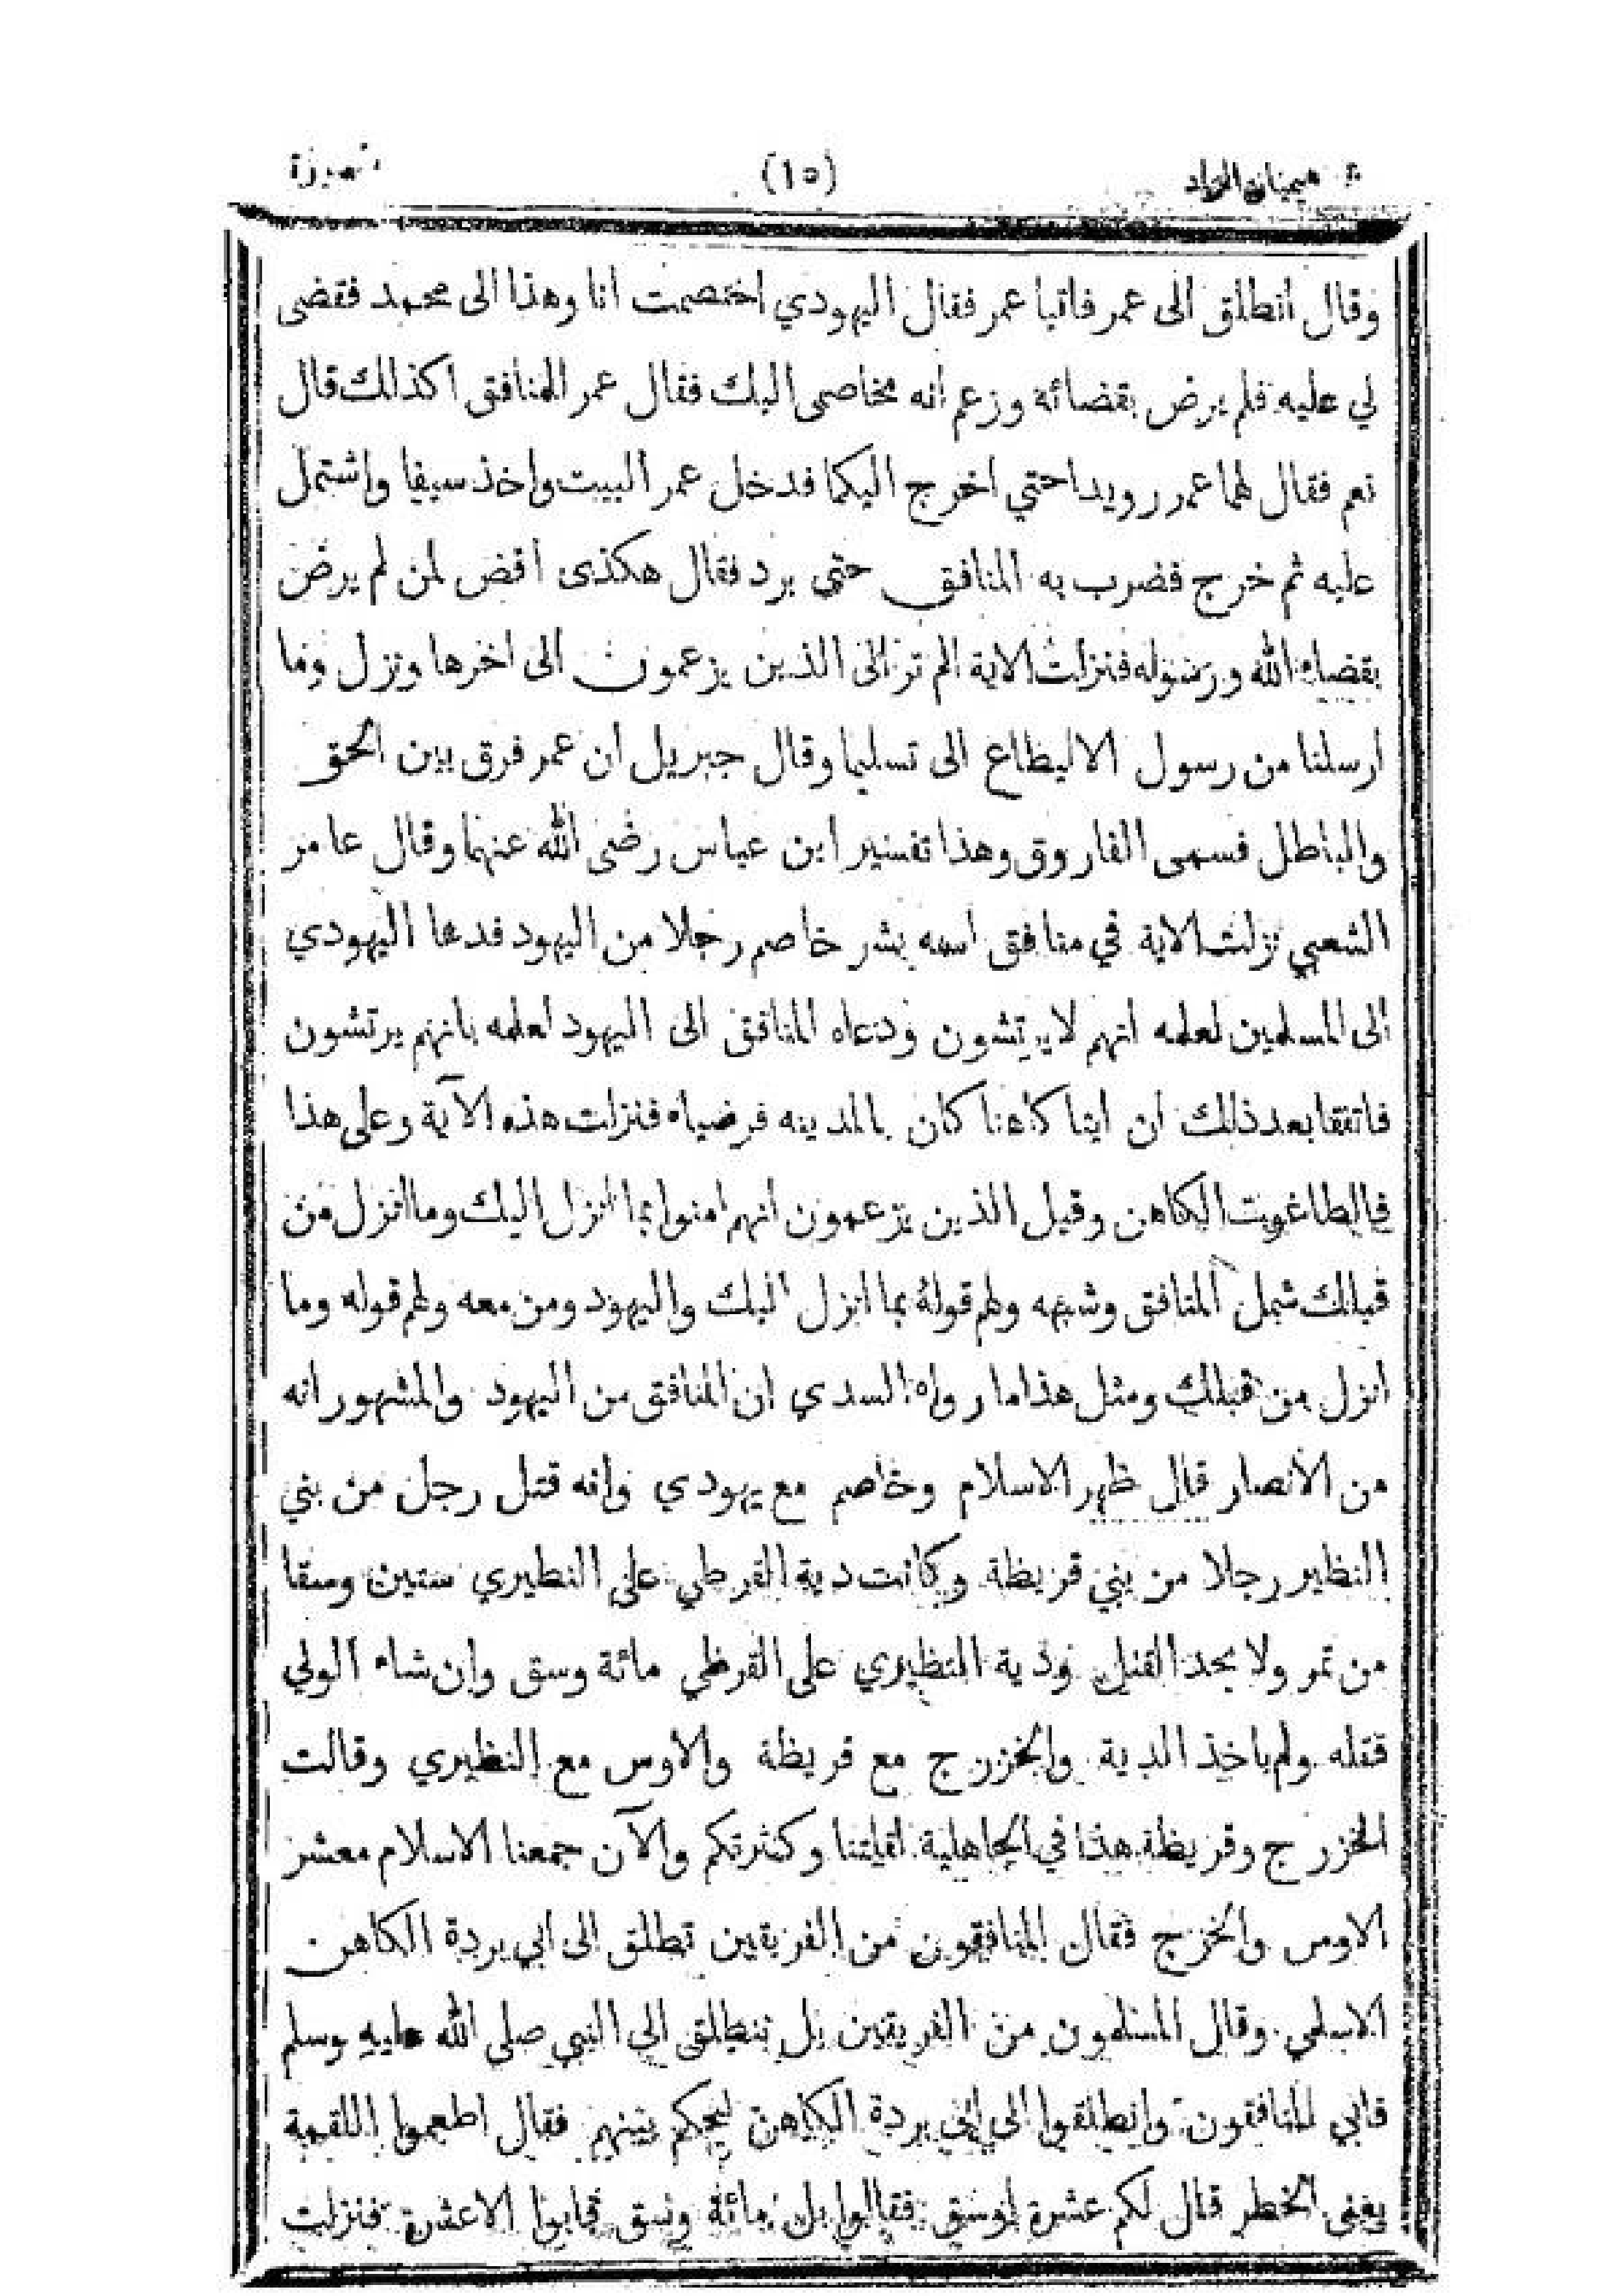 هميان الزاد (١٥)
وقال انطلق الى عمر فاتيا عمر فقال اليهودي اختصمت انا وهذا الى محمد فقضى
لي عليه فلم يرض بقضائه وزعم انه مخاصمى اليك فقال عمر المنافق اكذالك قال
نعم فقال لهما عمر رويدا حتي اخرج اليكما فدخل عمر البيت واخذ سيفا واشتمل
عليه ثم خرج فضرب به المنافق حتى برد فقال هكذى اقض لمن لم يرض
بقضاء الله ورسوله فنزلت الاية الم تر الى الذين يزعمون الى اخرها ونزل وما
ارسلنا من رسول الا ليطاع الى تسليما وقال جبريل ان عمر فرق بين الحق
والباطل فسمى الفاروق وهذا تفسير ابن عباس رضى الله عنهما وقال عامر
الشعبي نزلت الاية في منافق اسمه بشر خاصم رجلا من اليهود فدعا اليهودي
الى المسلمين لعلمه انهم لا يرتشون ودعاه المنافق الى اليهود لعلمه بانهم يرتشون
فاتفقا بعد ذلك ان اتيا كاهنا كان بالمدينه فرضياه فنزلت هذه الآية وعلى هذا
فالطاغوت الكاهن وقيل الذين يزعمون انهم امنوا بما انزل اليك وما انزل من
قبلك شمل المنافق وشبهه ولهم قوله بما انزل اليك واليهود ومن معه ولهم قوله وما
انزل من قبلك ومثل هذا ما رواه السدي ان المنافق من اليهود والمشهور انه
من الأنصار قال ظهر الاسلام وخاصم مع يهودي وانه قتل رجل من بني
النظير رجلا من بني قريظة وكانت دية القرطي على النطيري ستين وسقا
من تمر ولا يحد القتل ودية النظيري على القرظي مائة وسق وان شاء الولي
قتله ولم ياخذ الدية والخزرج مع قريظة والاوس مع النظيري وقالت
الخزرج وقريظة هذا في الجاهلية لقلتنا وكثرتكم والآن جمعنا الاسلام معشر
الاوس والخزرج فقال المنافقون من الفريقين تطلق الى ابي بردة الكاهن
الاسلمي وقال المسلمون من الفريقين بل ننطلق الى النبي صلى الله عليه وسلم
فابي المنافقون وانطلقوا الى ابي بردة الكاهن ليحكم بينهم فقال اطعموا اللقمة
يعنى الخطر قال لكم عشرة اوسق فقالوا بل مائة وسق فابوا الا عشرة فنزلت